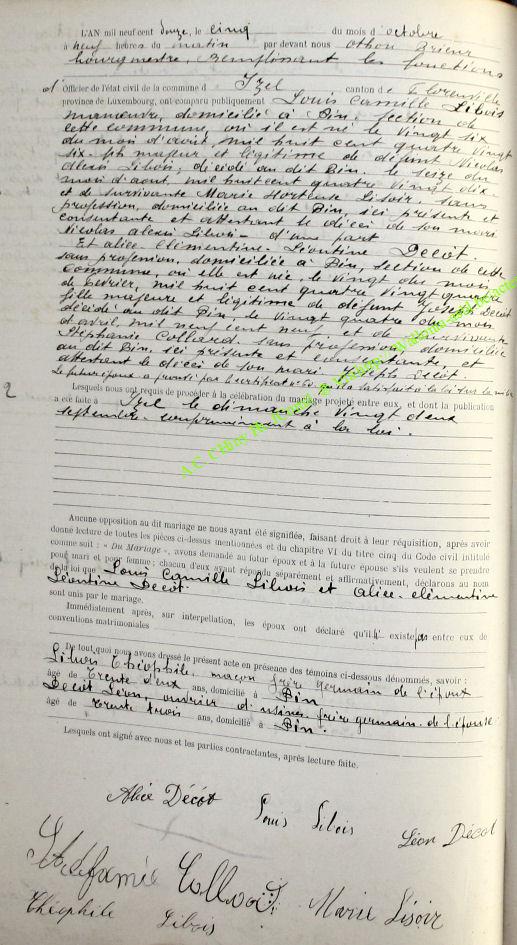 L'AN mil neuf cent douze, le cinq du mois d'octobre
à neuf heures du matin par devant nous Othon
bourgmestre, remplissant les fonctions
d'Officier de l'état civil de la commune d'Izel canton de Florenville
province de Luxembourg, ont comparu publiquement Louis Camille Libois
manœuvre, domicilié à Pin, section de
cette commune, où il est né le vingt six
du mois d'avril, mil huit cent quatre vingt
six, fils majeur et légitime de défunt Nicolas
Alexis Libois, décédé au dit Pin, le seize du
mois d'août, mil huit cent quatre vingt dix
et de survivante Marie Hortense Lisoir, sans
profession, domiciliée au dit Pin, ici présente et
consentante et attestant le décès de son mari
Nicolas Alexis Libois - d'une part
Et Alice Clémentine Léontine Decot,
sans profession, domiciliée à Pin, section de cette
commune, où elle est née, le vingt du mois
de février, mil huit cent quatre vingt quatre
fille majeure et légitime de défunt Joseph Decot
décédé au dit Pin, le vingt quatre du mois
d'avril, mil neuf cent neuf et de survivante
Stéphanie Collard, sans profession, domiciliée
au dit Pin, ici présente et consentante et
attestant le décès de son mari Joseph Decot
Le futur époux a prouvé par certificat qu'il a satisfait à la loi sur la milice
2
Lesquels nous ont requis de procéder à la célébration du mariage projeté entre eux, et dont la publication
a été faite à Izel le dimanche vingt deux
septembre conformément à la loi.
Aucune opposition au dit mariage ne nous ayant été signifiée, faisant droit à leur réquisition, après avoir
donné lecture de toutes les pièces ci-dessus mentionnées et du chapitre VI du titre cinq du Code civil intitulé
comme suit : « Du Mariage », avons demandé au futur époux et à la future épouse s'ils veulent se prendre
pour mari et pour femme ; chacun d'eux ayant répondu séparément et affirmativement, déclarons au nom
de la loi que Louis Camille Libois et Alice Clémentine
Léontine Decot
sont unis par le mariage.
Immédiatement après, sur interpellation, les époux ont déclaré qu'il n'existe pas entre eux de
conventions matrimoniales
De tout quoi nous avons dressé le présent acte en présence des témoins ci-dessous dénommés, savoir :
Libois Théophile, maçon, frère germain de l'époux
âgé de trente deux ans, domicilié à Pin
Decot Léon, ouvrier d'usines, frère germain de l'épouse
âgé de trente trois ans, domicilié à Pin.
Lesquels ont signé avec nous et les parties contractantes, après lecture faite.
Alice Décot Louis Libois Léon Décot
Collard Marie Lisoir
Théophile Libois